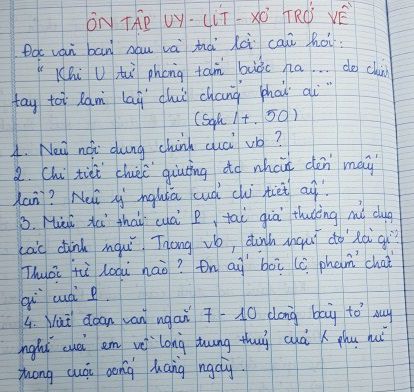 ÔN TẬP UY-LÍT-XƠ TRỞ VỀ
Đọc văn bản sau và trả lời câu hỏi:
"Khi U từ phòng tắm bước ra ... do chính
tay tôi làm lấy chứ chẳng phải ai"
(Sgk/t. 50)
1. Nêu nội dung chính của vb?
2. Chi tiết chiếc giường đc nhắc đến mấy
lần? Nêu ý nghĩa của chi tiết ấy.
3. Miêu tả thái của P, tác giả thường sử dụng
các định ngữ. Trong vb, định ngữ đó là gì?
Thuộc từ loại nào? Ôn ấy bộc lộ phẩm chất
gì của P.
4. Viết đoạn văn ngắn 7 - 10 dòng bày tỏ suy
nghĩ của em về lòng chung thuỷ của phụ nữ
trong cuộc sống hằng ngày.